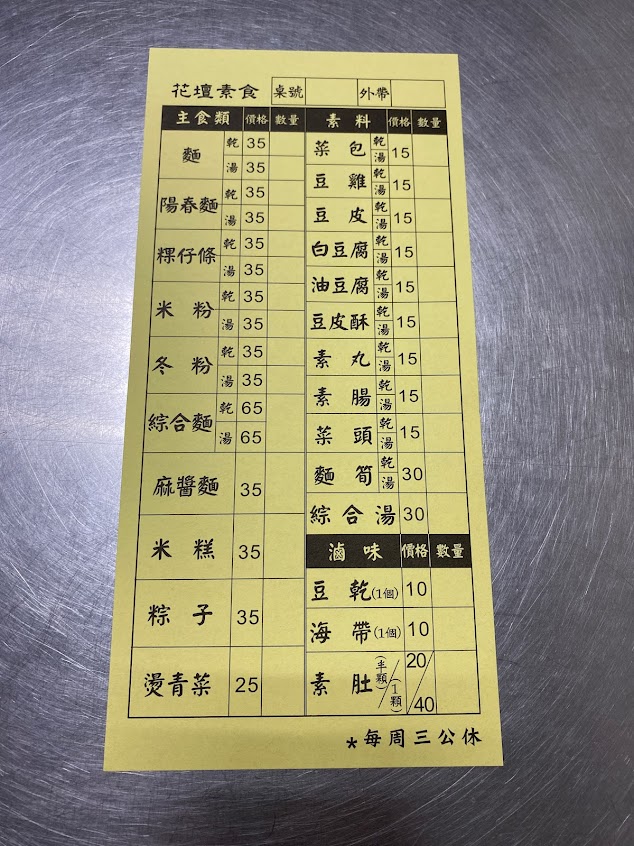 花壇素食 桌號 外帶
主食類 價格 數量
麵 乾 35
湯 35
陽春麵 乾 35
湯 35
粿仔條 乾 35
湯 35
米粉 乾 35
湯 35
冬粉 乾 35
湯 35
綜合麵 乾 65
湯 65
麻醬麵 35
米糕 35
粽子 35
燙青菜 25
素料 價格 數量
菜包 乾 湯 15
豆雞 乾 湯 15
豆皮 乾 湯 15
白豆腐 乾 湯 15
油豆腐 乾 湯 15
豆皮酥 乾 湯 15
素丸 乾 湯 15
素腸 乾 湯 15
菜頭 乾 湯 15
麵筍 乾 湯 30
綜合湯 30
滷味 價格 數量
豆乾(1個) 10
海帶(1個) 10
素肚(半顆)/(1顆) 20/40
*每周三公休